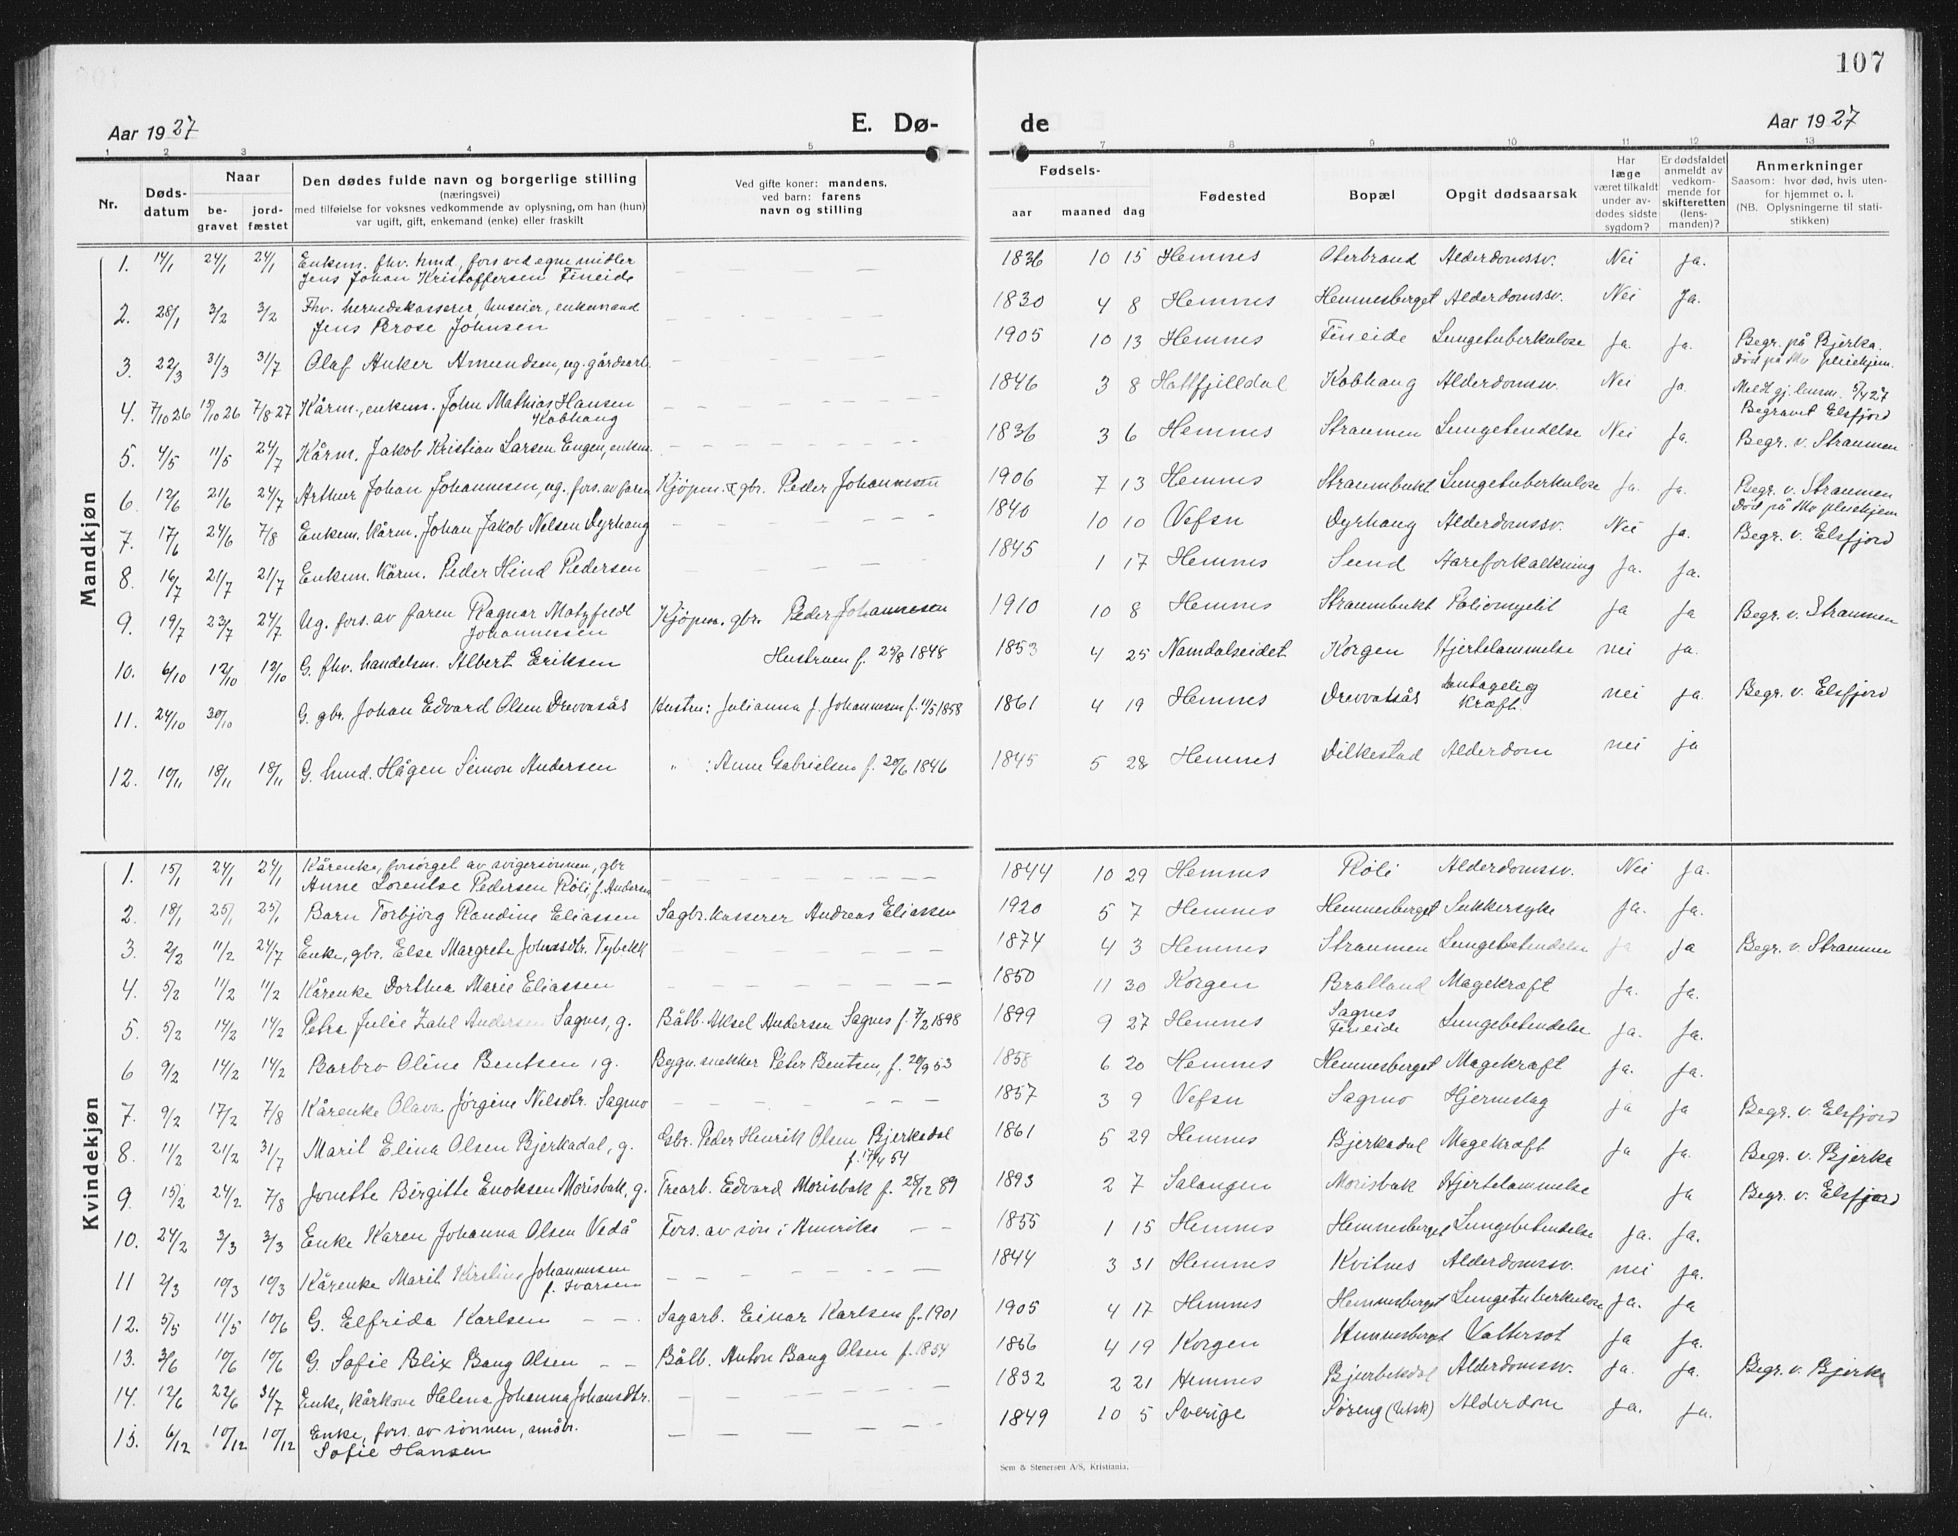 107
Aar 1927 E. Dø- de Aar 1927
1 2 3 4 5 7 8 9 10 11 12 13
Nr. Døds-datum Naar be-gravet jord-fæstet Den dødes fulde navn og borgerlige stilling (næringsvei) med tilføielse for voksnes vedkommende av oplysning, om han (hun) var ugift, gift, enkemand (enke) eller fraskilt Ved gifte koner: mandens, ved barn: farens navn og stilling Fødsels- aar maaned dag Fødested Bopæl Opgit dødsaarsak Har læge været tilkaldt under av-dødes sidste sygdom? Er dødsfaldet anmeldt av vedkom-mende for skifteretten (lens-manden)? Anmerkninger Saasom: hvor død, hvis uten-for hjemmet o. l. (NB. Oplysningerne til stati-stikken)
Mandkjøn
1. 14/1 24/1 24/1 Enkem. fhv. hmd, fors ved egne midler
Jens Johan Kristoffersen Fineide — — — 1836 10 15 Hemnes Oterbrand Alderdomssv. Nei Ja.
2. 28/1 3/2 3/2 Fhv. herredskasserer, huseier, enkemand
Jens Brose Johnsen — — — 1830 4 8 Hemnes Hemnesberget Alderdomssv. Nei Ja.
3. 22/3 31/3 31/7 Olaf Anker Amundsen, ug. gårdsarb. — — — 1905 10 13 Hemnes Fineide Lungetuberkulose Ja. Ja. Begr. på Bjerka.
Død på Mo pleiehjem.
4. 7/10 26 15/10 26 7/8 27 Kårm., enkem. John Mathias Hansen
Kobhaug — — — 1846 3 8 Hattfjelldal Kobhaug Alderdomssv. Nei Ja. Meldt gj. lensm. 5/4 27
Begravet Elsfjord
5. 4/5 11/5 24/7 Kårm. Jakob Kristian Larsen Engen, enkem. — — — 1836 3 6 Hemnes Straumen Lungebetendelse Nei Ja. Begr. v. Straumen
6. 12/6 21/6 24/7 Arthur Johan Johannesen, ug. fors. av faren Kjøpm. & gbr. Peder Johannesen 1906 7 13 Hemnes Straumbukt Lungetuberkulose Ja. Ja. Begr. v. Straumen
Død på Mo pleiehjem
7. 17/6 24/6 7/8 Enkem. Kårm. Johan Jakob Nilsen Dyrhaug — — — 1840 10 10 Vefsn Dyrhaug Alderdomssv. Nei Ja. Begr. v. Elsfjord
8. 16/7 21/7 21/7 Enkem. Kårm. Peder Hind Pedersen — — — 1845 1 17 Hemnes Sund Aareforkalkning Ja. Ja.
9. 19/7 23/7 24/7 Ug. fors. av faren Ragnar Matzfeldt
Johannessen Kjøpm. gbr. Peder Johannesen 1910 10 8 Hemnes Straumbukt Poliomyelit Ja Ja Begr. v. Straumen
10. 6/10 12/10 12/10 G. fhv. handelsm. Albert Eriksen Hustruen f. 25/8 1848 1853 4 25 Namdalseidet Korgen Hjertelammelse nei ja.
11. 24/10 30/10 G. gbr. Johan Edvard Olsen Drevvatsås Hustru: Julianna f. Johannesen f. 11/5 1858 1861 4 19 Hemnes Drevvatsås Antagelig
kræft. nei ja. Begr. v. Elsfjord
12. 10/11 18/11 18/11 G. hmd. Hågen Simon Andersen " : Anne Gabrielsen f. 20/6 1846 1845 5 28 Hemnes Dilkestad Alderdom nei ja
Kvindekjøn
1. 15/1 24/1 24/1 Kårenke, forsørget av svigersønnen, gbr
Anne Lorentse Pedersen Røli f. Andersen — — — 1844 10 29 Hemnes Røli Alderdomssv. Nei Ja.
2. 18/1 25/1 25/1 Barn Torbjørg Randine Eliassen Sagbr.kasserer Andreas Eliassen 1920 5 7 Hemnes Hemnesberget Sukkersyke Ja. Ja.
3. 2/2 11/2 24/7 Enke, gbr. Else Margrete Johnsdtr. Tybekk — — — 1874 4 3 Hemnes Straumen Lungebetendelse Ja Ja Begr. v. Straumen
4. 5/2 11/2 11/2 Kårenke Dorthea Marie Eliassen — — — 1850 11 30 Korgen Bralland Magekræft Ja. Ja.
5. 5/2 14/2 14/2 Petra Julie Zahl Andersen Sagnes, g. Båtb. Aksel Andersen Sagnes f. 7/2 1898 1899 9 27 Hemnes Sagnes
Fineide Lungebetendelse Ja. Ja.
6 9/2 14/2 14/2 Barbro Oline Bentsen, g. Bygn.snekker Peter Bentsen, f. 20/9 53 1858 6 20 Hemnes Hemnesberget Magekræft Ja. Ja.
7. 9/2 17/2 7/8 Kårenke Olava Jørgine Nilsdtr. Sagmo — — — 1857 3 9 Vefsn Sagmo Hjerneslag Ja Ja Begr. v. Elsfjord
8. 11/2 21/2 31/7 Marit Elina Olsen Bjerkadal, g. Gbr. Peder Henrik Olsen Bjerkadal
f. 17/4 54 1861 5 29 Hemnes Bjerkadal Magekræft Ja Ja. Begr. v. Bjerka
9. 15/2 24/2 7/8 Jonette Birgitte Enoksen Morisbak, g. Trearb. Edvard Morisbak f. 28/12 89 1893 2 7 Salangen Morisbak Hjertelammelse Ja Begr. v. Elsfjord
10. 24/2 3/3 3/3 Enke Karen Johanna Olsen Vedå Fors. av søn i Amerika — — 1855 1 15 Hemnes Hemnesberget Lungebetendelse Ja. Ja.
11 2/3 10/3 10/3 Kårenke Marit Kirstine Johannesen
f. Ivarsen — — — 1844 3 31 Hemnes Kvitnes Alderdomssv. nei Ja.
12. 5/5 11/5 10/6 G. Elfrida Karlsen — — Sagarb. Einar Karlsen f. 1901 1905 4 17 Hemnes Hemnesberget Lungetuberkulose Ja. Ja
13. 3/6 10/6 10/6 G. Sofie Blix Bang Olsen — — Båtb. Anton Bang Olsen f. 1854 1866 4 19 Korgen Hemnesberget Vattersot Ja Ja.
14. 12/6 22/6 31/7 Enke, kårkone Helena Johanna Johansdtr. — — — 1832 2 21 Hemnes Alderdomssv. Ja. Ja. Begr. v. Bjerka
15. 6/12 10/12 10/12 Enke, fors. av sønnen, småbr.
Sofie Hansen — — — 1849 10 5 Sverige Alderdom Ja. Ja.
Sem & Stenersen A/S, Kristiania.